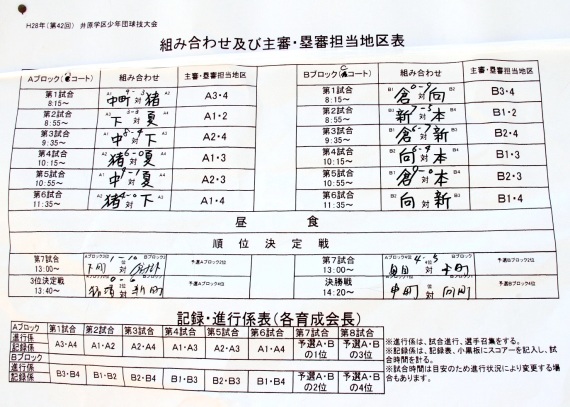 H28年(第42回) 井原学区少年団球技大会
組み合わせ及び主審・塁審担当地区表
Aブロック( コート) 組み合わせ 主審・塁審担当地区
第1試合 8:15~ A1 中町 対 猪 A2 A3・4
第2試合 8:55~ 下 対 夏 A1・2
第3試合 9:35~ 中 対 下 A2・4
第4試合 10:15~ 猪 6-0 対 夏 A1・3
第5試合 10:55~ 中 9-1 対 夏 A2・3
第6試合 11:35~ 猪 対 下 A1・4
Bブロック( コート) 組み合わせ 主審・塁審担当地区
第1試合 8:15~ B1 倉 対 向 B2 B3・4
第2試合 8:55~ 新 7-5 対 本 B1・2
第3試合 9:35~ B1 倉 6-7 対 新 B3 B2・4
第4試合 10:15~ 向 対 本 B1・3
第5試合 10:55~ 倉 対 本 B2・3
第6試合 11:35~ 向 対 新 B1・4
昼 食
順 位 決 定 戦
第7試合 13:00~ 対 予選Aブロック2位
3位決定戦 13:40~ 対 予選Aブロック4位
第7試合 13:00~ 対 予選Bブロック2位
決勝戦 14:20~ 中町 対 向町 予選Bブロック4位
記録・進行係表(各育成会長)
Aブロック 第1試合 第2試合 第3試合 第4試合 第5試合 第6試合 第7試合 第8試合
進行係 記録係 A3・A4 A1・A2 A2・A4 A1・A3 A2・A3 A1・A4 予選A・Bの1位 予選A・Bの3位
Bブロック
進行係 記録係 B3・B4 B1・B2 B2・B4 B1・B3 B2・B3 B1・B4 予選A・Bの2位 予選A・Bの4位
※進行係は、試合進行、選手召集をする。
※記録係は、記録表、小黒板にスコアーを記入し、試合時間を計る。
※試合時間は目安のため進行状況により変更する場合もあります。